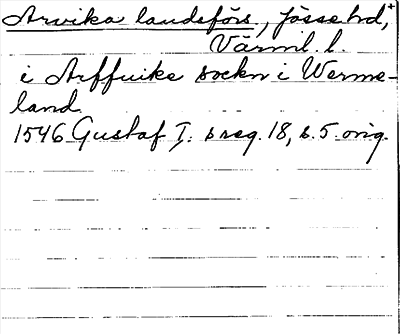 Arvika landsförs., Jösse hd,+
Värml. l.
i Arffuike sockn i Werme-
land
1546 Gustaf I:s reg. 18, s. 5. orig.